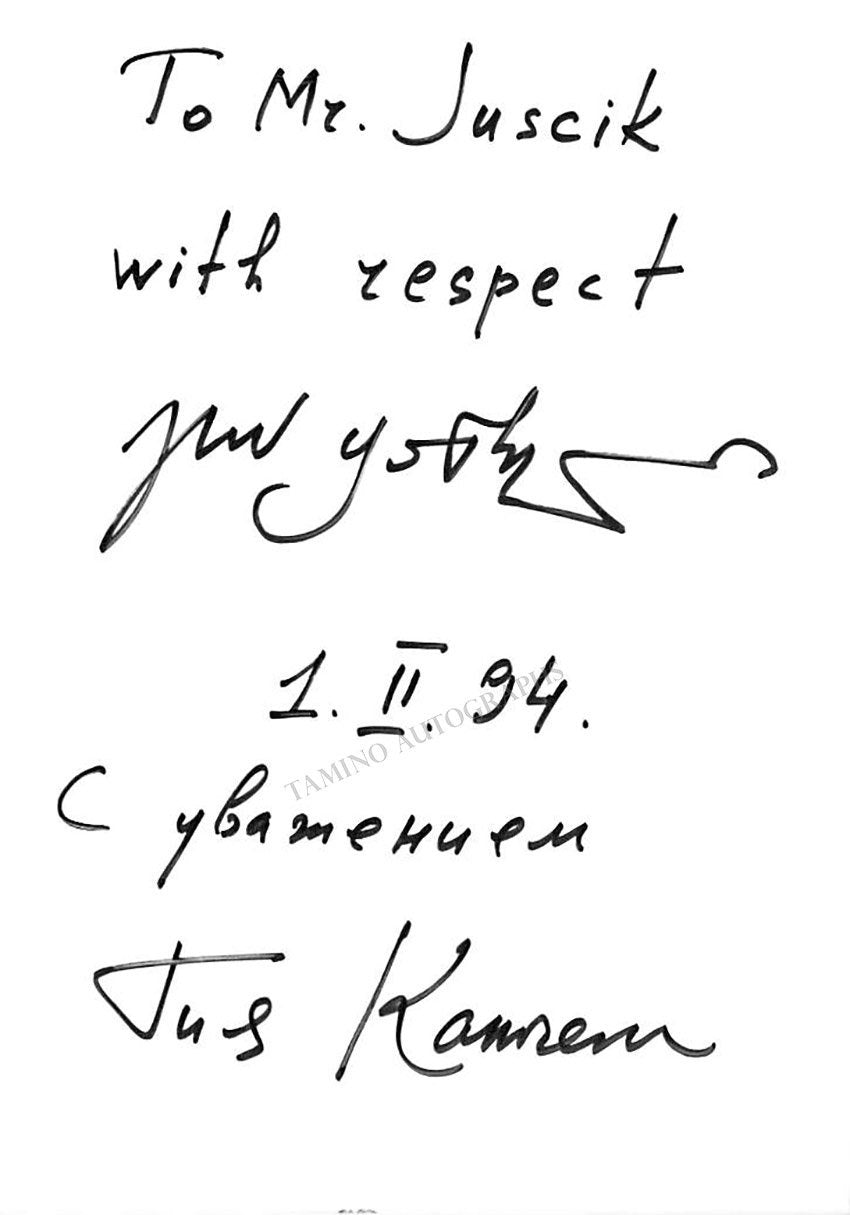 To Mr. Juscik
with respect
1. II. 94.
TAMINO AUTOGRAPHS
С уважением
Гия Канчели